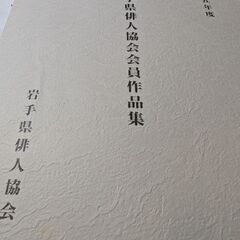 年度
県俳人協会会員作品集
岩手県俳人協会